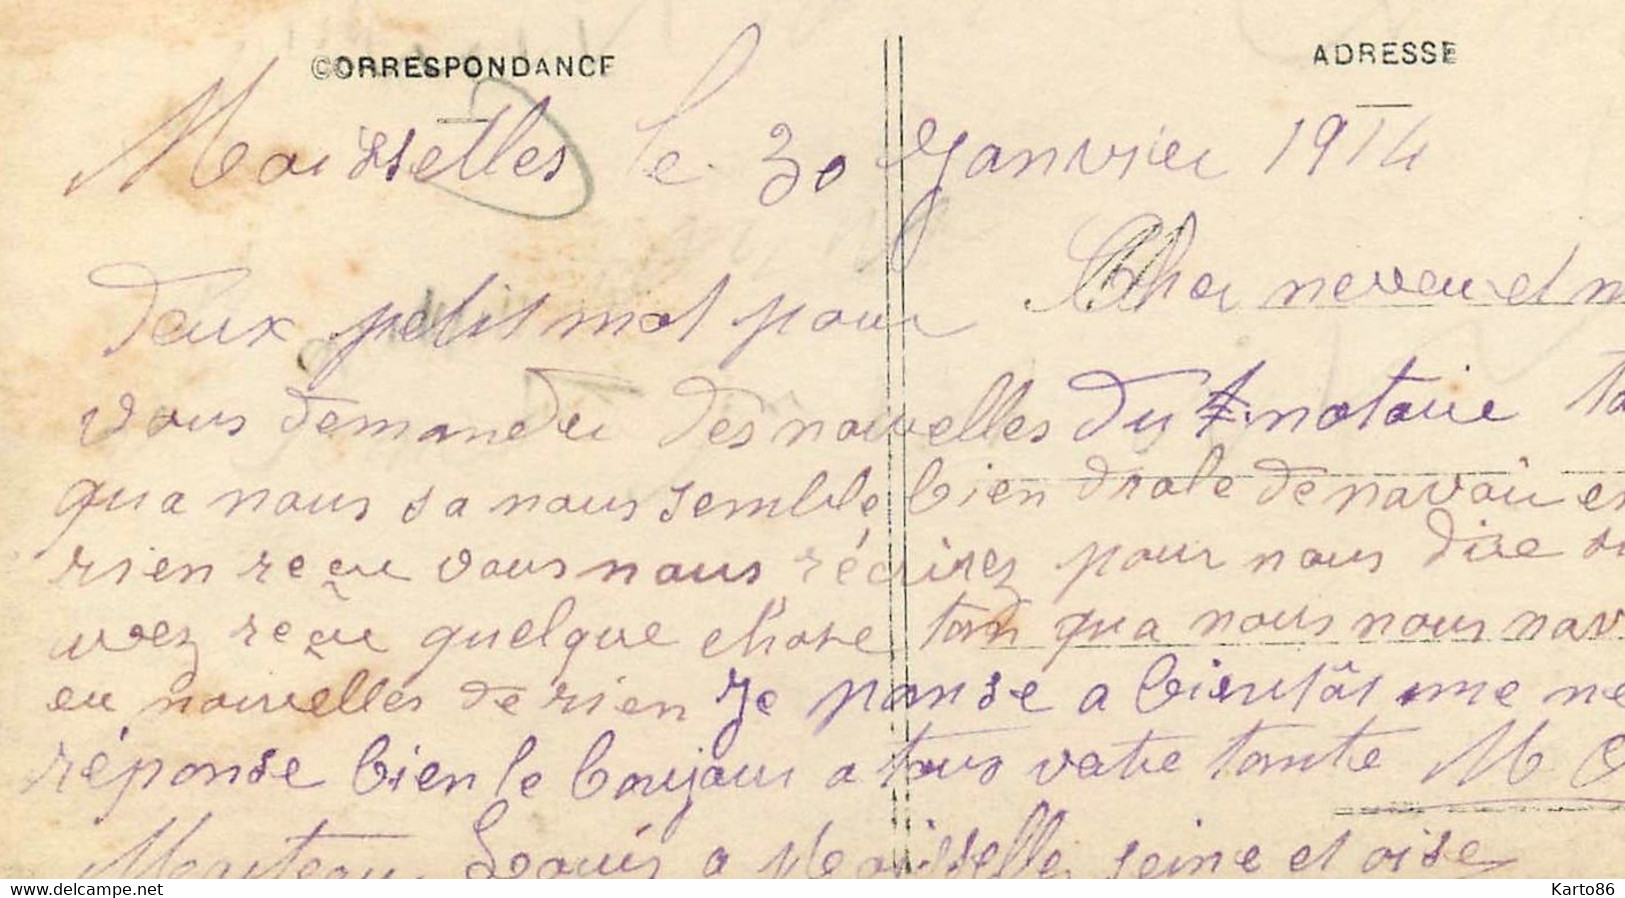 CORRESPONDANCE
ADRESSE
Moisselles le 30 Janvier 1914
Cher neveu et n
Deux petit mot pour
vous demander des nouvelles du notaire ta
qua nous sa nous semble bien drole de navoir en
rien reçu vous nous récirez pour nous dire si
avez reçu quelque chose tant qua nous nous nav
eu nouvelles de rien Je panse a bientôt une ne
réponse bien le bonjour a tous votre tante M
Louis a Moisselle, seine et oise
www.delcampe.net
Karto86